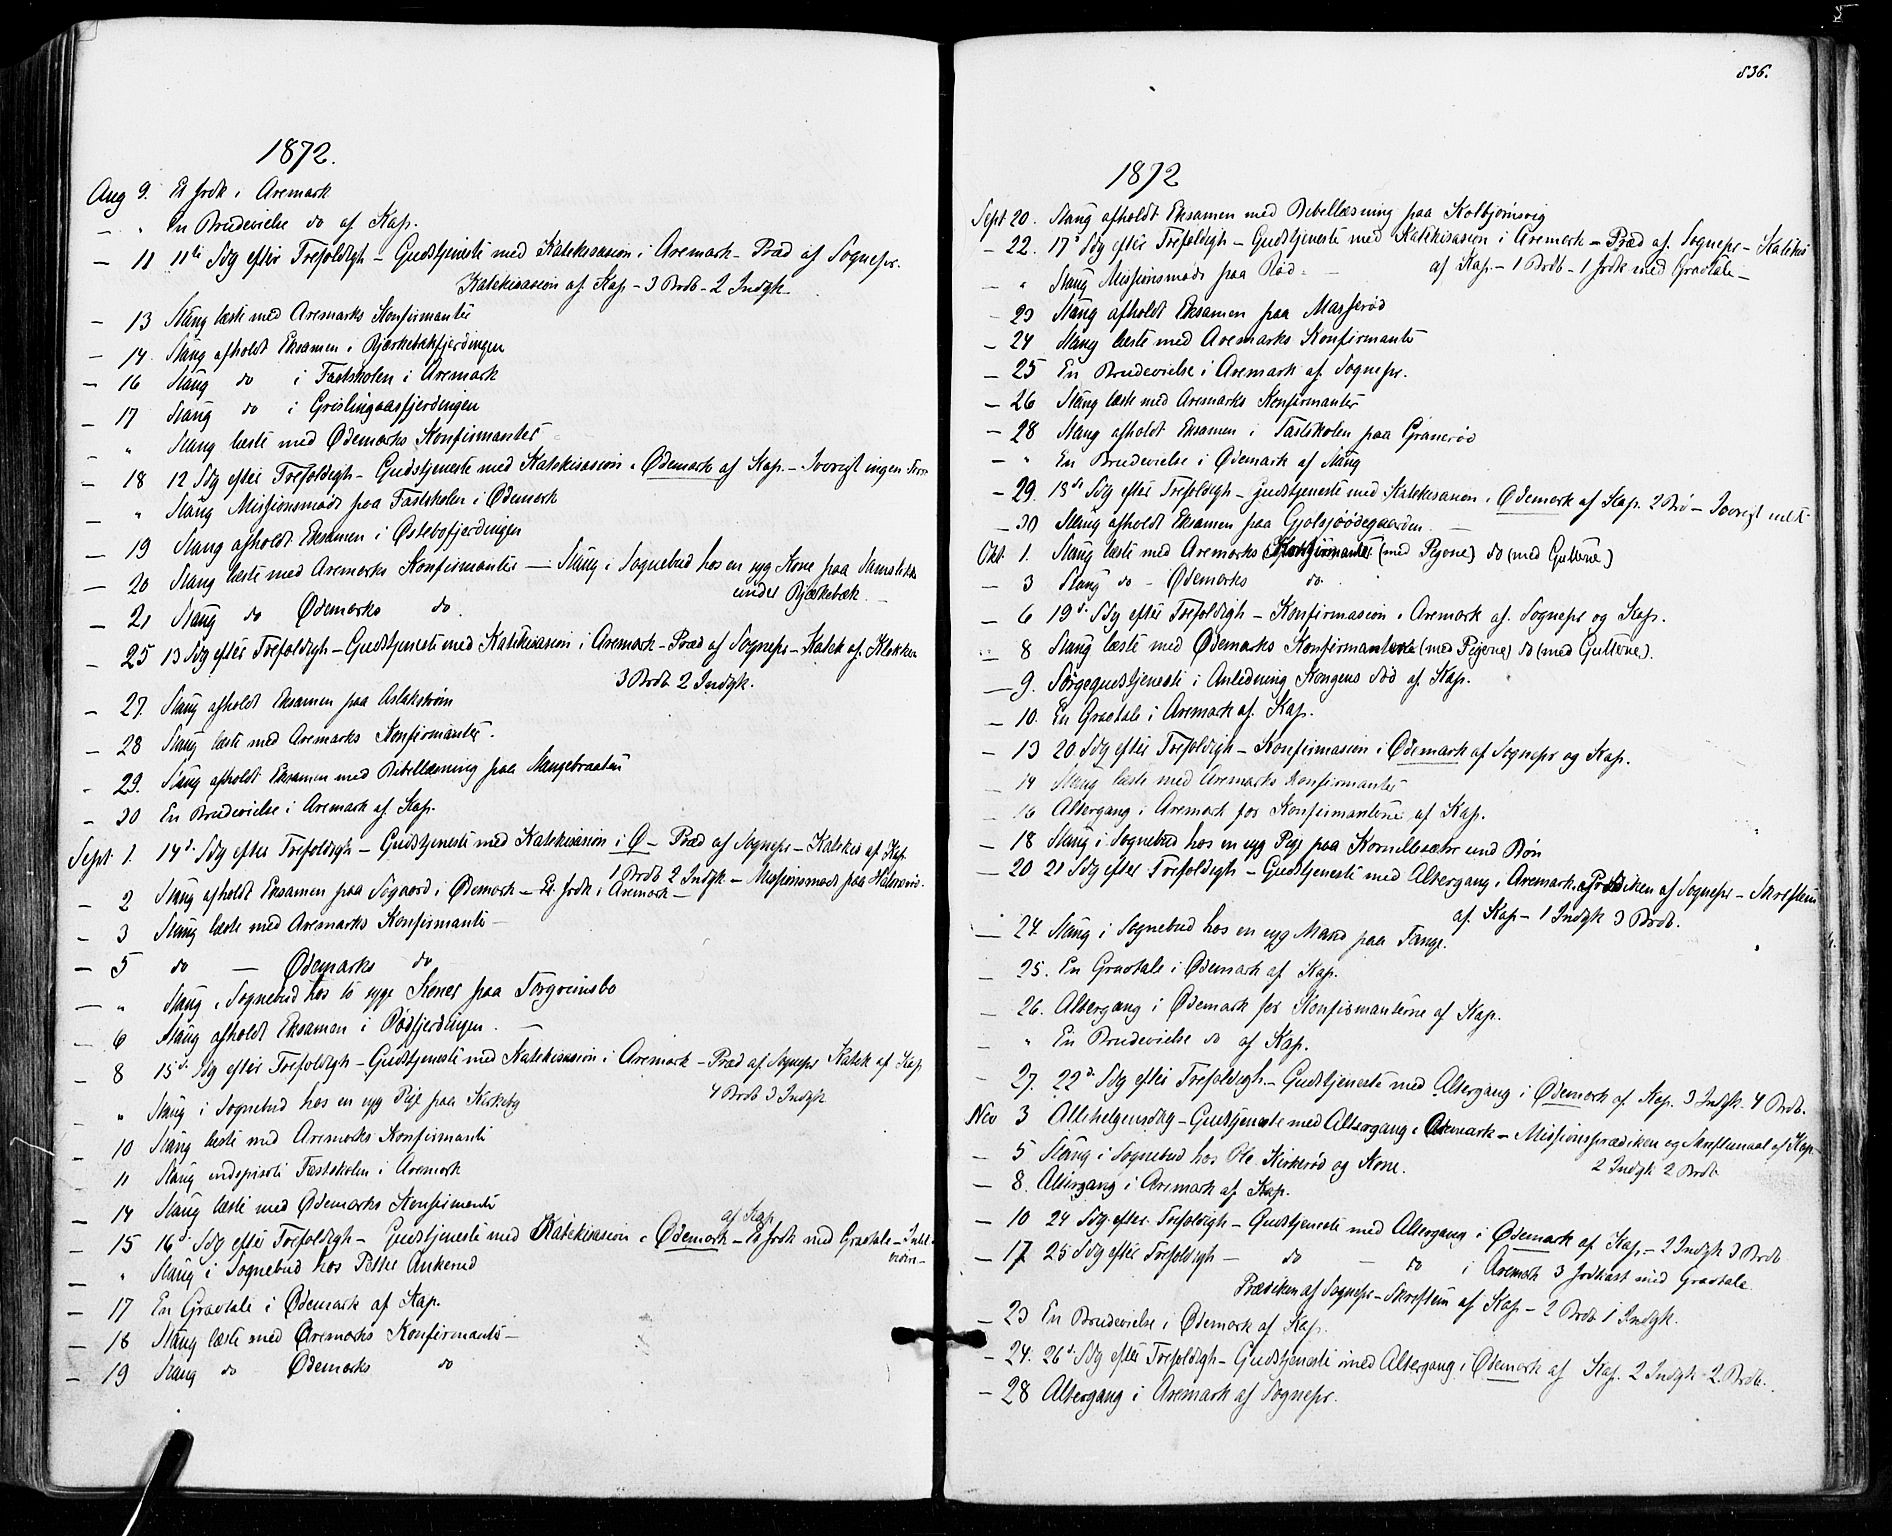 1872.
Aug 9. Et Jrdk i Aremark
— " En Brudevielse do af Kap.
— 11 11te Sdg efter Trefoldigh – Gudstjeneste med Katekisasion i Aremark – Præd af Sognepr.
Katekisasion af Kap – 3 Brdb – 2 Indgk
— 13 Stang læste med Aremarks Konfirmanter
— 14. Stang afholdt Eksamen i Bjærkebækfjerdingen
— 16 Stang do i Fastskolen i Aremark
— 17 Stang do i Grislingaasfjerdingen
— " Stang læste med Ødemarks Konfirmanter
— 18 12 Sdg efter Trefoldigh – Gudstjeneste med Katekisasion i Ødemark af Kap. – Iøvrigt ingen
— " Stang Missionsmøde paa Fastskolen i Ødemark
— 19 Stang afholdt Eksamen i Østebøfjerdingen
— 20 Stang læste med Aremarks Konfirmanter — Stang i Sognebud hos en syg Kone paa
under Bjærkebæk —
— 21 Stang do Ødemarks do.
— 25 13 Sdg efter Trefoldigh – Gudstjeneste med Katekisasion i Aremark – Præd af Sognepr – Katek af Klokker
3 Brdb 2 Indgk.
— 27. Stang afholdt Eksamen paa Aslakstrøm
— 28 Stang læste med Aremarks Konfirmanter.
— 29. Stang afholdt Eksamen med Bibellæsning paa Mangebraaten
— 30 En Brudevielse i Aremark af Kap.
Sept 1. 14d. Sdg efter Trefoldigh – Gudstjeneste med Katekisasion i Ø – Præd af Sognepr – Katekis af Kap.
1 Brdb 2 Indgk – Missionsmøde paa
— 2 Stang afholdt Eksamen paa Søgaard i Ødemark – Et Jrdk i Aremark –
— 3 Stang læste med Aremarks Konfirmanter –
— 5 do — Ødemarks do
— " Stang i Sognebud hos to syge Koner paa Torgrimsbo
— 6 Stang afholdt Eksamen i Rødfjerdingen. —
— 8 15d. Sdg efter Trefoldigh – Gudstjeneste med Katekisasion i Aremark – Præd af Sognepr Katek af Kap
4 Brdb 3 Indgk
— " Stang i Sognebud hos en syg Pige paa Kirkeby
— 10 Stang læste med Aremarks Konfirmanter
— 11 Stang Fastskolen i Aremark
— 14 Stang læste med Ødemarks Konfirmanter
af Kap
— 15 16d. Sdg efter Trefoldigh – Gudstjeneste med Katekisasion i Ødemark – Et Jrdk med Gravtale –
— " Stang i Sognebud hos Petter Ankerud
— 17 En Gravtale i Ødemark af Kap.
— 18 Stang læste med Aremarks Konfirmanter –
— 19 Stang do Ødemarks do
836.
1872
Sept 20. Stang afholdt Eksamen med Bibellæsning paa Kolbjørnsvig
— 22. 17d Sdg efter Trefoldigh – Gudstjeneste med Katekisasion i Aremark – Præd af Sognepr – Katekis
af Kap. – 1 Brdb – 1 Jrdk med Gravtale –
— " Stang Missionsmøde paa Rød –
— 23 Stang afholdt Eksamen paa Masserød
— 24 Stang læste med Aremarks Konfirmanter
— 25 En Brudevielse i Aremark af Sognepr.
— 26 Stang læste med Aremarks Konfirmanter
— 28 Stang afholdt Eksamen i Fastskolen paa Granerød
— " En Brudevielse i Ødemark af Stang
— 29. 18de Sdg efter Trefoldigh – Gudstjeneste med Katekisasion i Ødemark af Kap. 2 – Iøvrigt intet
— 30 Stang afholdt Eksamen paa Gjølsjøødegaarden. —
Okt 1. Stang læste med Aremarks Konfirmanter (med Pigerne) do (med Gutterne)
— 3 Stang do – Ødemarks do.
— 6 19d. Sdg efter Trefoldigh – Konfirmasion i Aremark af Sognepr og Kap.
— 8 Stang læste med Ødemarks Konfirmanterne (med Pigerne) do (med Gutterne).
— 9. Sørgegudstjeneste i Anledning Kongens Død af Kap.
— 10. En Gravtale i Aremark af Kap.
— 13 20 Sdg efter Trefoldigh – Konfirmasion i Ødemark af Sognepr og Kap.
— 14 Stang læste med Aremarks Konfirmanter
— 16 Altergang i Aremark for Konfirmanterne af Kap.
— 18 Stang i Sognebud hos en syg Pige paa Kornelbsæter und Bøn
— 20 21 Sdg efter Trefoldigh – Gudstjeneste med Altergang i Aremark Prædiken af Sognepr – Skriftem
af Kap – 1 Indgk 3 Brdb.
— 24. Stang i Sognebud hos en syg Mand paa Tange.
— 25. En Gravtale i Ødemark af Kap.
— 26. Altergang i Ødemark for Konfirmanterne af Kap.
— " En Brudevielse do af Kap.
— 27. 22d. Sdg efter Trefoldigh – Gudstjeneste med Altergang i Ødemark af Kap. 3 Indgk. 4 Brdb.
Nov 3 Allehelgensdag – Gudstjeneste med Altergang i Aremark – Missionsprædiken og Skriftemaal af Kap
2 Indgk 2 Brdb
— 5 Stang i Sognebud hos Ole Kirkerød og Kone.
— 8. Altergang i Aremark af Kap.
— 10 24 Sdg efter Trefoldigh – Gudstjeneste med Altergang i Ødemark af Kap – 2 Indgk 3 Brdb
— 17 25 Sdg efter Trefoldigh – do – do i Aremark 3 Jordkast med Gravtale
Prædiken af Sognepr – Skriftem af Kap – 2 Brdb 1 Indgk.
— 23 En Brudevielse i Ødemark af Kap.
— 24. 26d. Sdg efter Trefoldigh – Gudstjeneste med Altergang i Ødemark af Kap. 2 Indgk – 2 Brdb.
— 28 Altergang i Aremark af Sognepr.